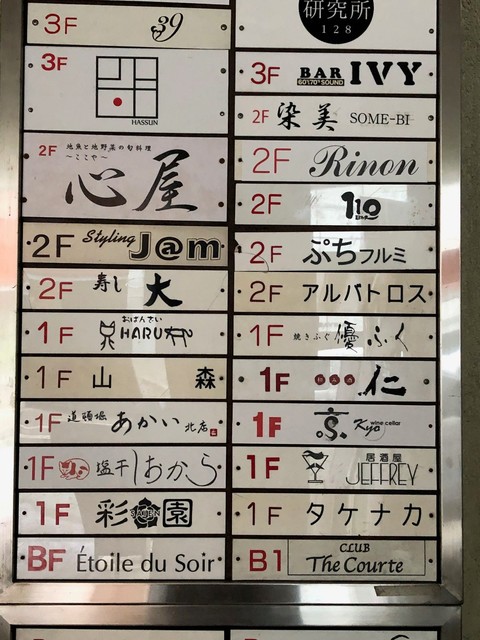 3F 39
3F
HASSUN
2F 地魚と地野菜の旬料理
～ここや～
心屋
2F Styling J@m
2F 寿し 大
1F おばんざい
HARU
1F 山 森
1F 道頓堀 あかい 北店
1F 塩干しおから
1F 彩園
BF Étoile du Soir
研究所
128
3F BAR IVY
60'70's SOUND
2F 染美 SOME-BI
2F Rinon
2F 110
2F ぷちフルミ
2F アルバトロス
1F 焼きふぐ 優ふく
1F 仁
1F 京 Kyo wine cellar
1F 居酒屋
JEFFREY
1F タケナカ
B1 CLUB
The Courte